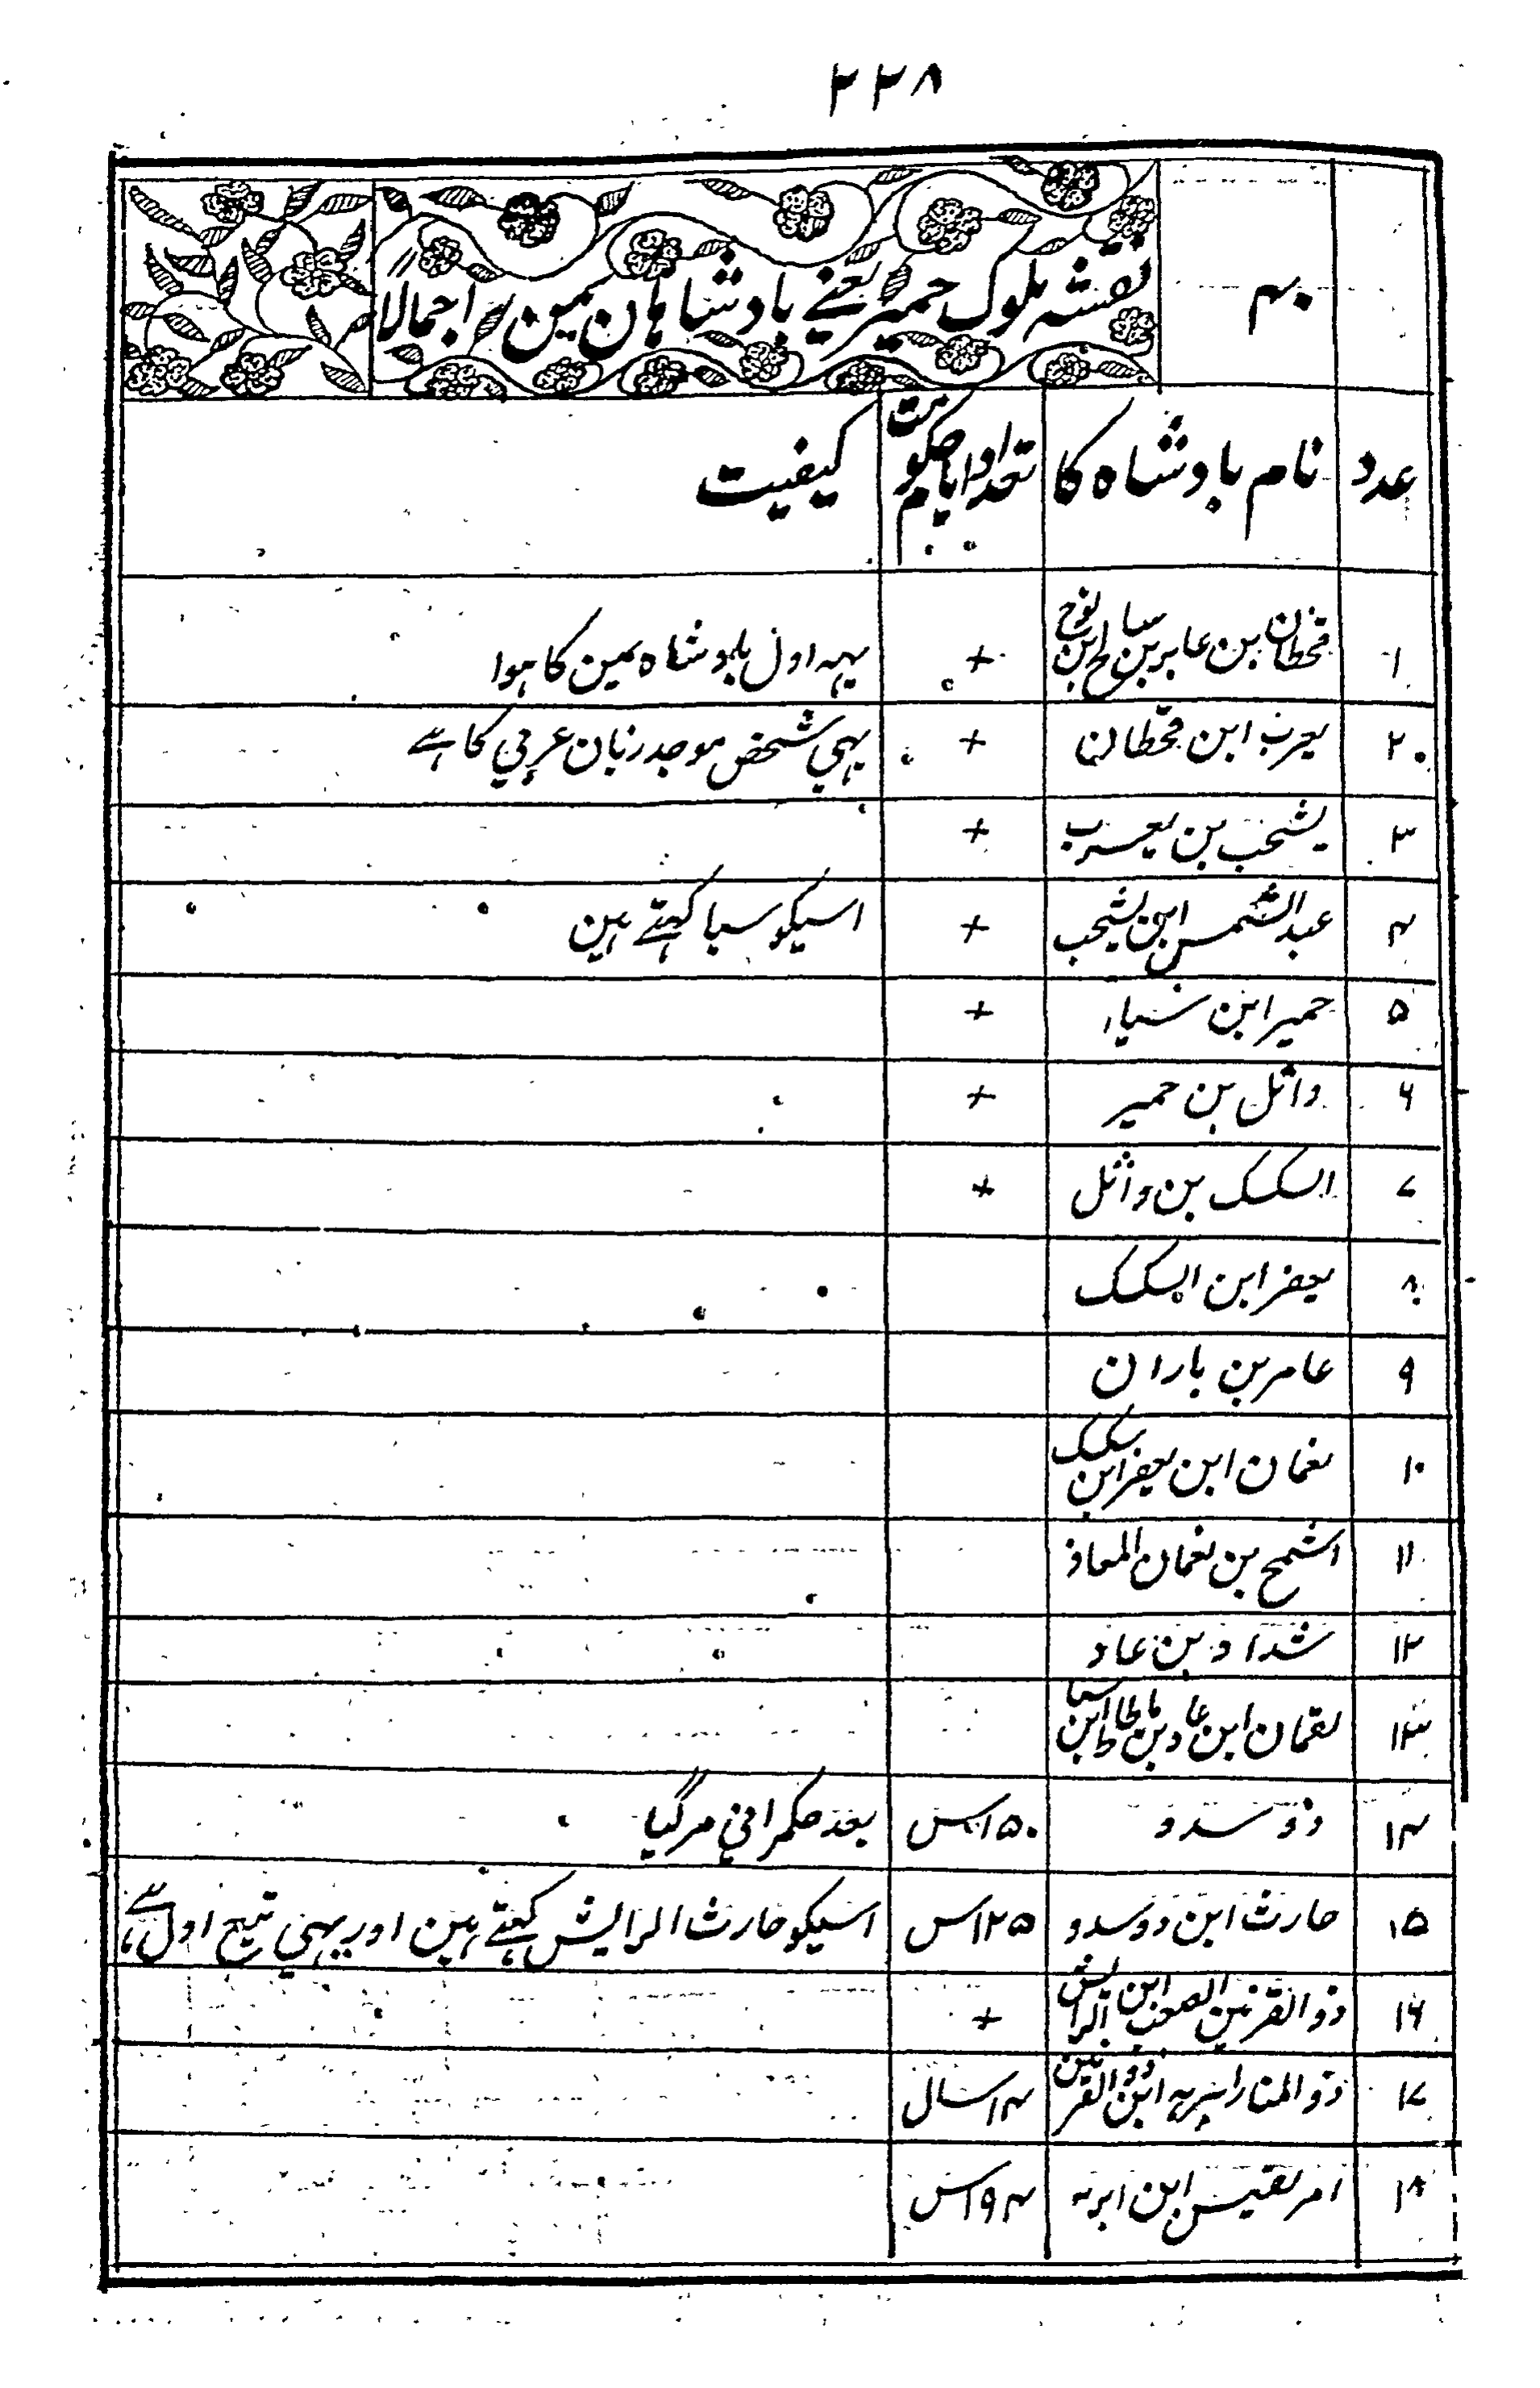 ۲۲۸
۴۰ نقشہ ملوک حمیر یعنے بادشاہان یمن اجمالاً
عدد نام بادشاہ کا تعداد ایام حکومت کیفیت
۱ قحطان بن عابر بن سالح ابن نوح + یہہ اول بادشاہ یمن کا ہوا
۲ یعرب ابن قحطان + یہی شخص موجد زبان عربی کا ہے
۳ یشحب بن یعرب +
۴ عبدالشمس ابن یشحب + اسیکو سبا کہتے ہین
۵ حمیر ابن سباء +
۶ واثل بن حمیر +
۷ السکسک بن واثل +
۸ یعفر ابن السکسک
۹ عامر بن باران
۱۰ نعمان ابن یعفر ابن سکسک
۱۱ اشمح بن نعمان المعافر
۱۲ شداد بن عاد
۱۳ لقمان ابن عاد بن ماطاط ابن سبا
۱۴ ذو سدد ۱۵۰س بعد حکمرانی مر گیا
۱۵ حارث ابن ذو سدد ۱۲۵س اسیکو حارث الرایش کہتے ہین اور یہی تبع اول ہے
۱۶ ذوالقرنین الصعب ابن الرایش +
۱۷ ذوالمنار ابرہہ ابن ذوالقرنین ۱۴سال
۱۸ امریقیس ابن ابرہہ ۱۹۴س